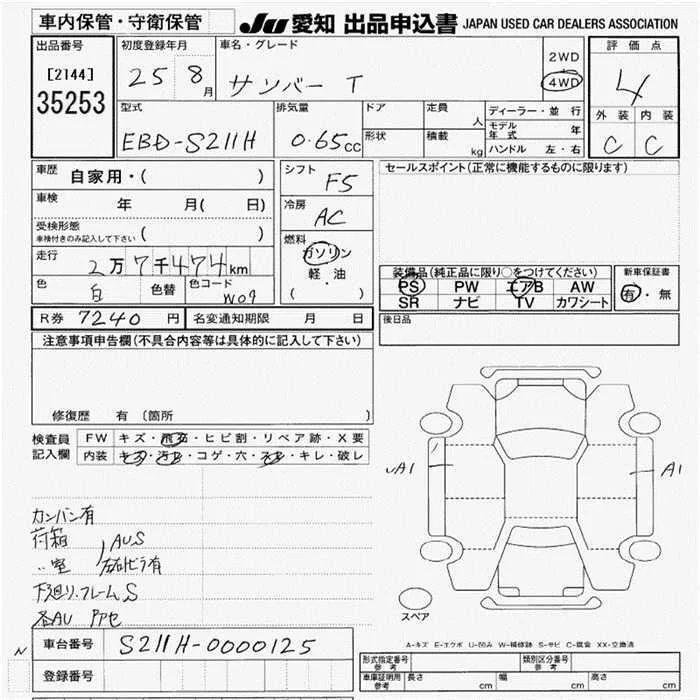 車内保管・守衛保管 JU 愛知 出品申込書 JAPAN USED CAR DEALERS ASSOCIATION
出品番号 初度登録年月 車名・グレード 2WD 評価点
[2144] 25 8月 サンバー T 4WD 4
35253
型式 排気量 ドア 定員 人 ディーラー・並行 外装 内装
EBD-S211H 0.65cc 形状 積載 kg モデル年式 年 C C
ハンドル 左・右
車歴 自家用・( ) シフト F5 セールスポイント(正常に機能するものに限ります)
車検 年 月( 日) 冷房 AC
受検形態 ( )
車検付きのみ記入して下さい
燃料 ガソリン
走行 2万7千474km 軽・油 装備品(純正品に限り○をつけてください) 新車保証書
色 白 色替 色コード W09 ( ) PS PW エアB AW 有・無
SR ナビ TV カワシート
R券 7240 円 名変通知期限 月 日 後日品
注意事項申告欄(不具合内容等は具体的に記入して下さい)
修復歴 有 〔箇所 〕
検査員 FW キズ・飛石・ヒビ割・リペア跡・X要
記入欄 内装 キズ・汚れ・コゲ・穴・スレ・キレ・破レ
A1 A1
カンバン有
荷箱 AUS
〃室
下廻り.フレームS
各AU
スペア
N 車台番号 S211H-0000125
A-キズ E-エクボ U-凹み W-補修跡 S-サビ C-腐食 XX-交換済
登録番号
形式指定番号 参考 類別区分番号 参考
車庫証明用 参考 長さ cm 幅 cm 高さ cm